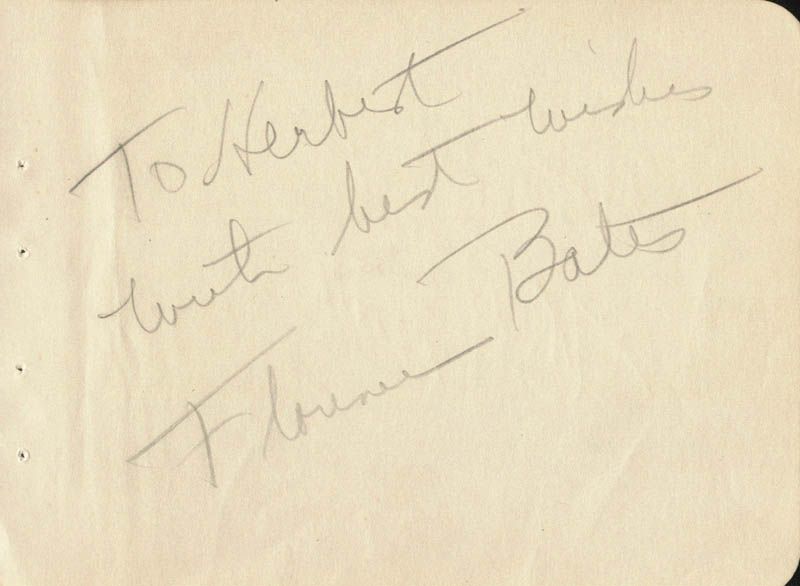 To Herbert
with best wishes
Florence Bates